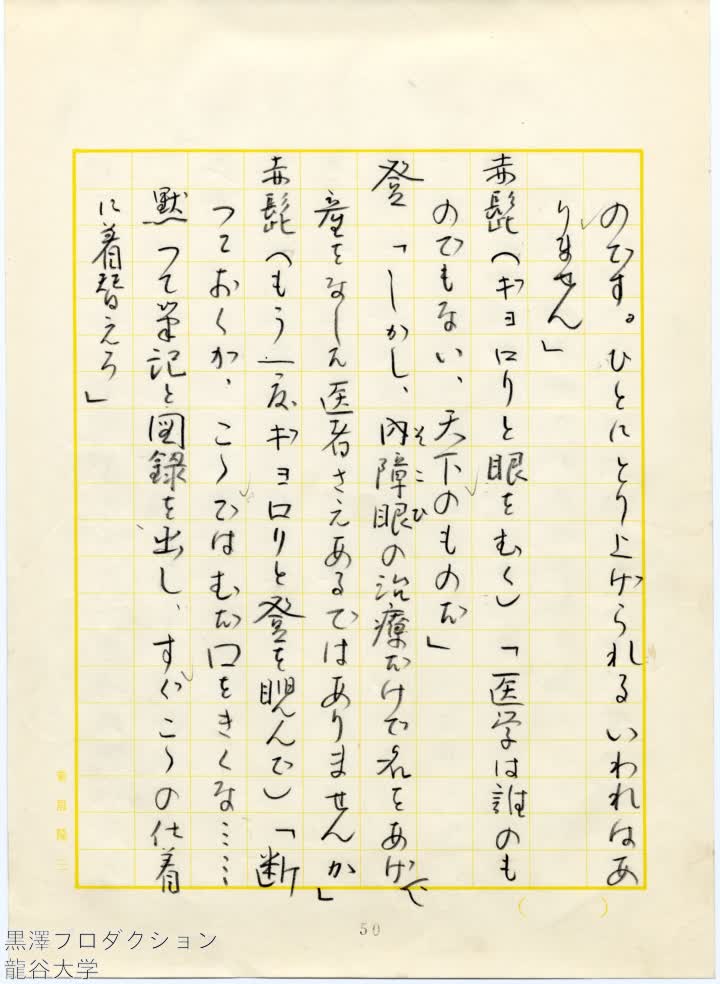 のです。ひとにとり上げられるいわれはあ
りません」
赤髭(ギョロリと眼をむく)「医学は誰のも
のでもない、天下のものだ」
登「しかし、内障眼の治療だけで名をあげ、
そこひ
産をなした医者さえあるではありませんか」
赤髭(もう一度ギョロリと登を睨んで)「断
っておくが、こゝではむだ口をきくな……
黙って筆記と図録を出し、すぐこゝの仕着
に着替えろ」
50
黒澤プロダクション
龍谷大学